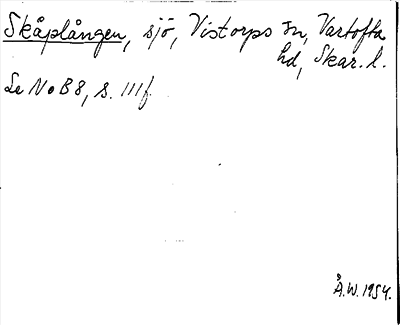 Skåplången, sjö, Vistorps sn, Vartofta
hd, Skar. l.
Se NoB 8, s. 111 f.
Å.W. 1954.